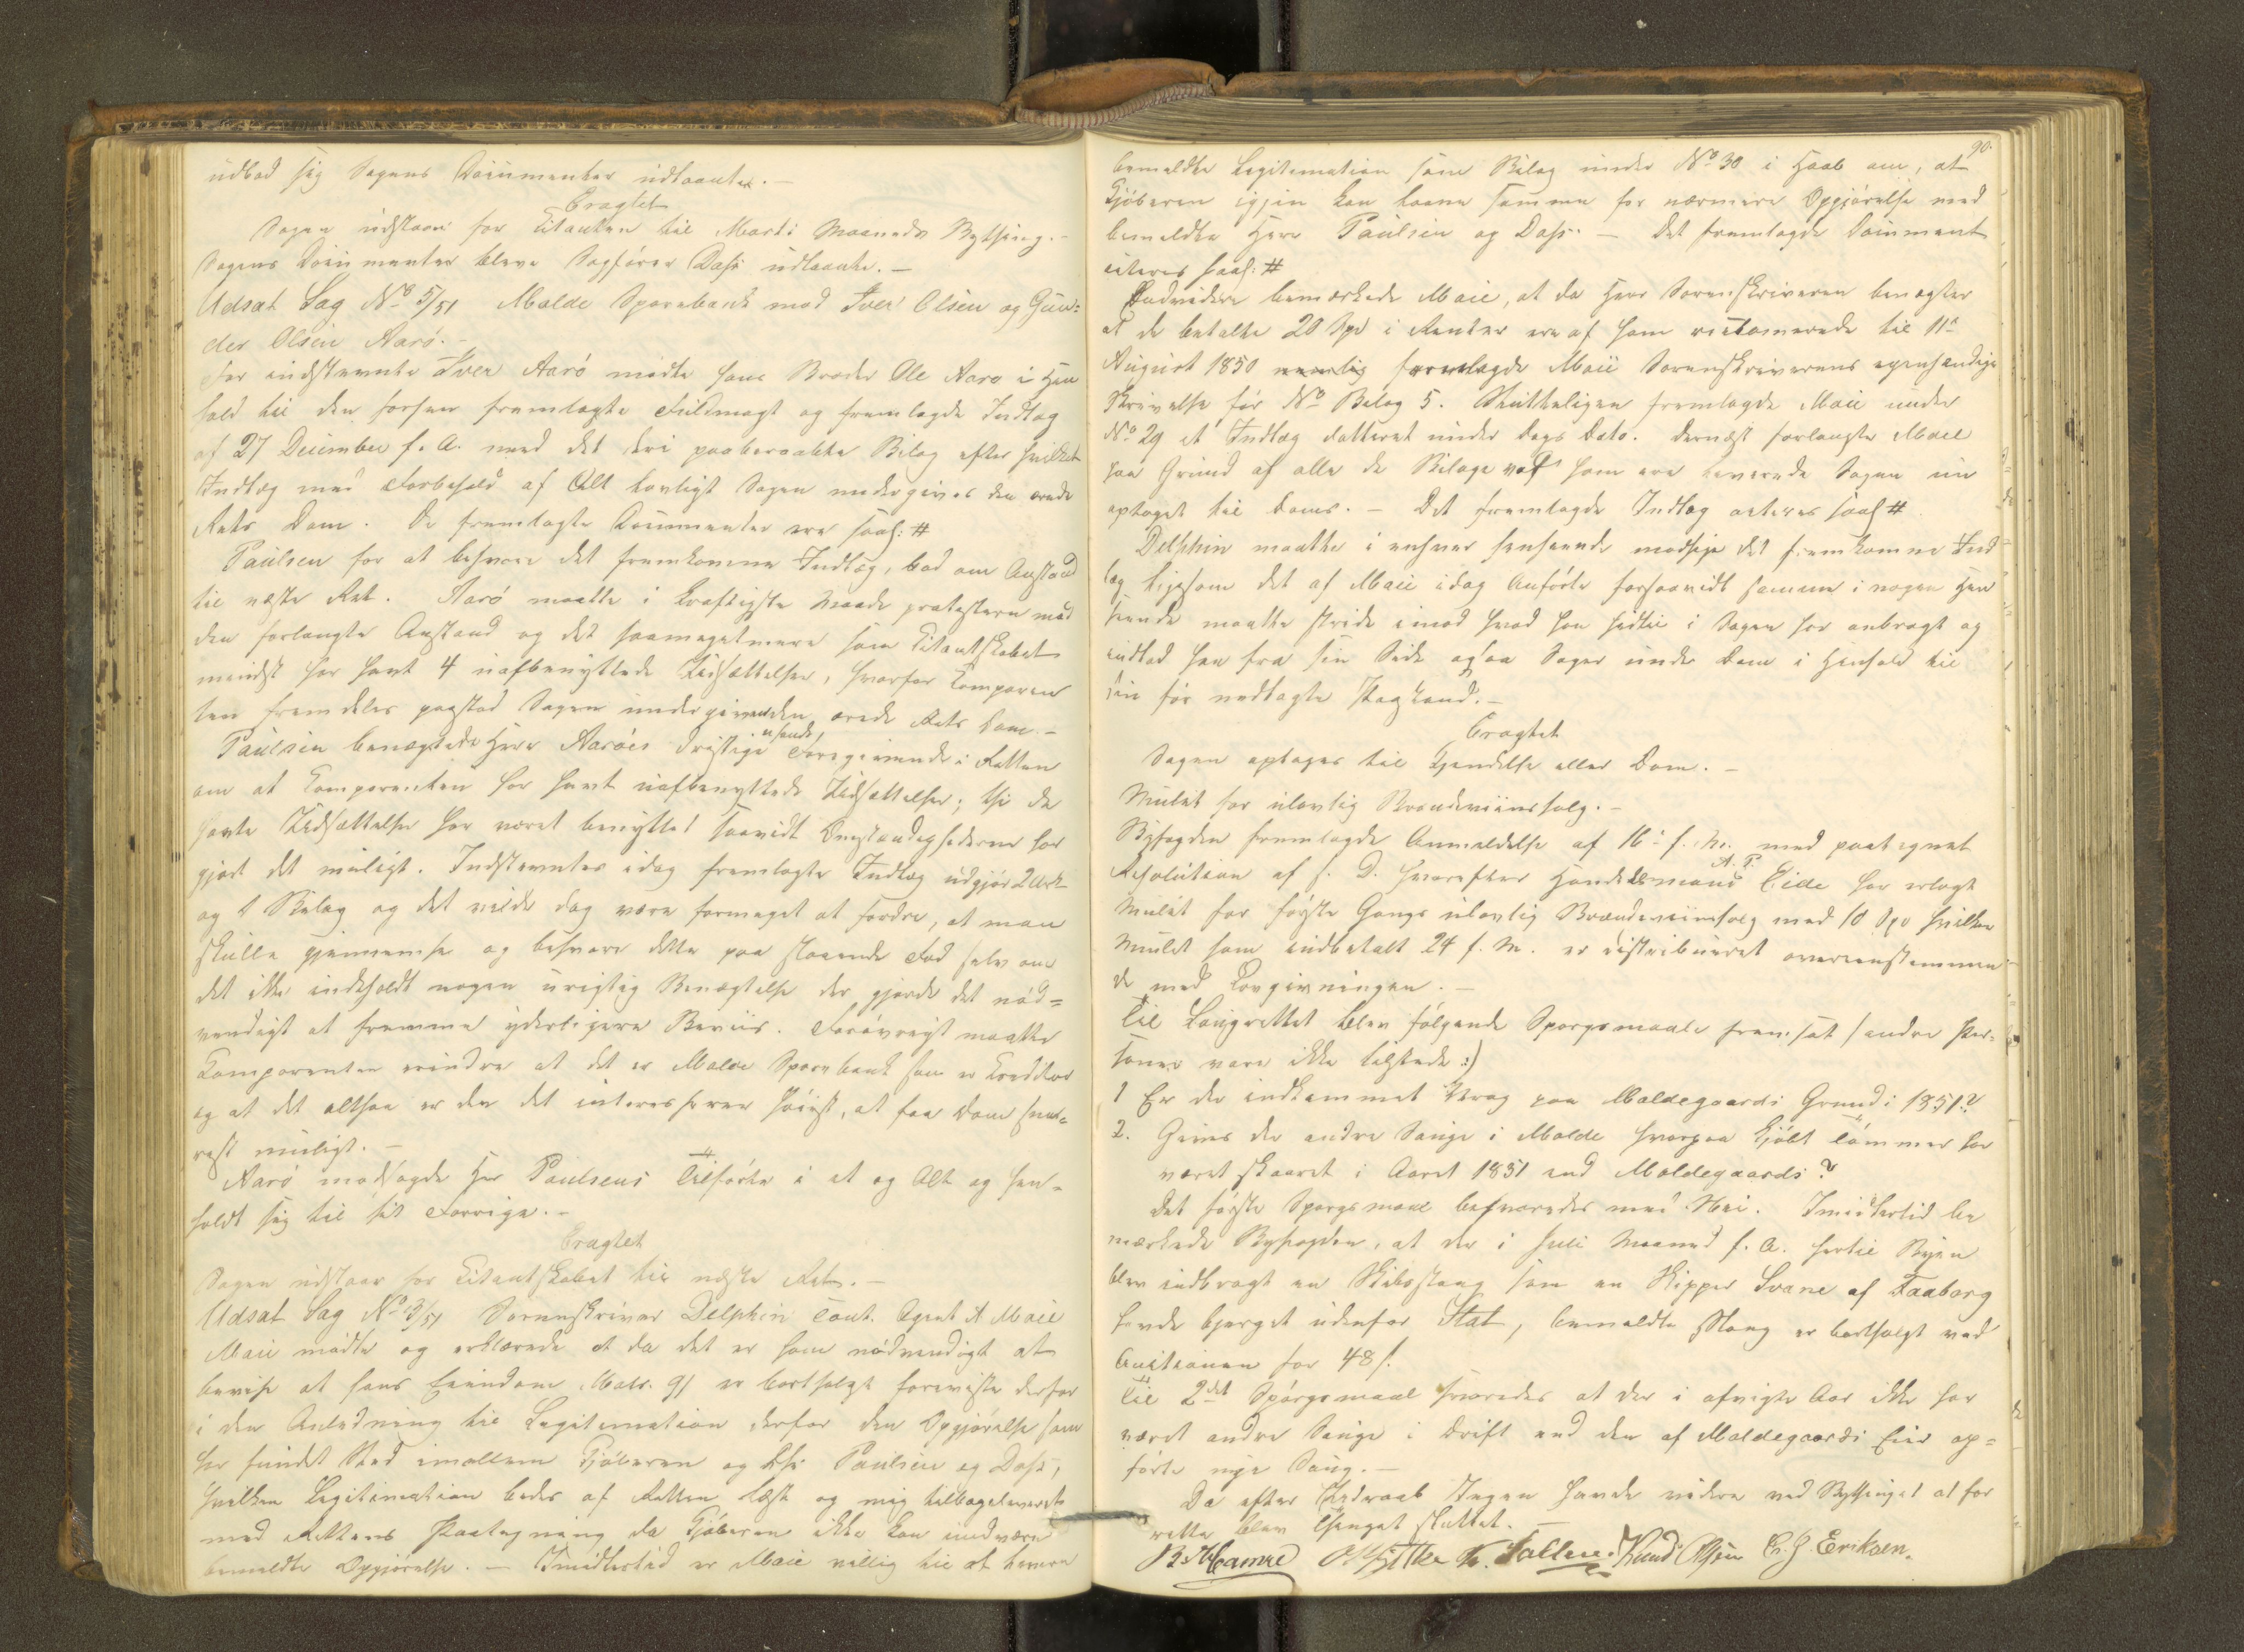 udbad sig Sagens Documenter udlaante. –
Eragtet
Sagen udstaar for Citanten til Marti Maaneds Bything. –
Sagens Documenter bleve Sagfører Dahs udlaante. –
Udsat Sag No 5/51 Molde Sparebank mod Iver Olsen og Gun=
der Olsen Aarø. –
For indstevnte Iver Aarø mødte hans Broder Ole Aarø i Hen
hold til den forhen fremlagte Fuldmagt og fremlagde Indlæg
af 27 December f. A. med det deri paaberaabte Bilag efter hvilket
Indlæg med Forbehold af Alt lovligt Sagen undergives den ærede
Rets Dom. De fremlagte Documenter ere saal: #
Paulsen for at besvare det fremkomne Indlæg, bad om Anstand
til næste Ret. Aarø maatte i kraftigste Maade protestere mod
den forlangte Anstand og det saameget mere som Citantskabet
mindst har havt 4 uafbenyttede Udsættelser, hvorfor Comparen
ten fremdeles paastod Sagen undergivenden ærede Rets Dom. –
Paulsen benægtede Herr Aarøes dristige Foregivende i Retten
om at Comparenten har havt uafbenyttede Udsættelser; thi de
havte Udsættelser har været benyttet saavidt Omstændighederne har
gjort det muligt. Indstevntes idag fremlagte Indlæg udgjør 2 Ark
og 1 Bilag og det vilde dog være formeget at fordre, at man
skulle gjennemse og besvare dette paa staaende Fod selv om
det ikke indeholdt nogen urigtig Benægtelse der gjorde det nød=
vendigt at fremme yderligere Beviis. Forøvrigt maatte
Comparenten erindre at det er Molde Sparebank som er Creditor
og at det altsaa er den det interesserer høiest, at faa Dom snar=
est muligt. –
Aarø modsagde Hr Paulsens Tilførte i et og Alt og hen=
holdt sig til sit Forrige. –
Eragtet
Sagen udstaar for Citantskabet til næste Ret. –
Udsat Sag No 3/51 Sorenskriver Delphin cont. Agent A Moie
Moie mødte og erklærede at da det er ham nødvendigt at
bevise at hans Eiendom Matr. 91 er bortsolgt foreviste derfor
i den Anledning til Legitimation derfor den Opgjørelse som
har fundet Sted imellem Kjøberen og Paulsen og Dahs,
hvilken Legitimation bedes af Retten læst og mig tilbageleveret
med Rettens Paategning da Kjøberen ikke kan undvære
bemeldte Opgjørelse. – Imidlertid er Moie villig til at levere
90.
bemeldte Legitimation som Bilag under No 30 i Haab om, at
Kjøberen igjen kan laane samme for nærmere Opgjørelse med
bemeldte Herr Paulsen og Dahs. – Det fremlagde Document
acteres saal: #
Endvidere bemærkede Moie, at da Herr Sorenskriveren benægter
at de betalte 20 Spd i Renter ere af ham reclamerede til 11te
August 1850 nemlig fremlagde Moie Sorenskriverens egenhændige
Skrivelse før No Bilag 5. Sluttelligen fremlagde Moie under
No 29 et Indlæg datteret under Dags Dato. Dernæst forlangte Moie
paa Grund af alle de Bilage som ere Sagen nu
optaget til Doms. – Det fremlagde Indlæg acteres saal #
Delphin maatte i enhver Henseende modsige det fremkomne Ind
læg ligesom det af Moie idag Anførte forsaavidt samme i nogen Hen
seende maatte stride imod hvad han hidtil i Sagen har anbragt og
indlod han fra sin Side ogsaa Sagen under Dom i Henhold til
sin før nedlagte Paastand. –
Eragtet
Sagen optages til Kjendelse eller Dom. –
Mulct for ulovlig Brændeviinssalg. –
Byfogden fremlagde Anmeldelse af 16de f. M. med paategnet
Resolution af s. D. hvorefter Handelsmand A. P. Eide har erlagt
Mulct for første Gangs ulovlig Brændeviinssalg med 10 Spd hvilken
Mulct som indbetalt 24 f. M. er distribueret overeensstemmen
de med Lovgivningen. –
Til Laugrettet blev følgende Spørgsmaale fremsat (andre Per=
soner vare ikke tilstede:)
1 Er der indkommet Vrag paa Moldegaards Grund i 1851?
2. Gives der andre Sauge i Molde hvorpaa kjøbt Tømmer har
været skaaret i Aaret 1851 end Moldegaards?
Det første Spørgsmaal besvaredes med Nei. Imidlertid be
mærkede Byfogden, at der i Juli Maaned f. A. hertil Byen
blev indbragt en Skibsstang som en Skipper Svane af Faaborg
havde bjerget udenfor Stat, bemeldte Stang er bortsolgt ved
Auctionen for 48 s.
Til 2det Spørgsmaal svaredes at der i afvigte Aar ikke har
været andre Sauge i Drift end den af Moldegaards Eier op=
førte nye Saug. –
Da efter Udraab Ingen havde videre ved Bythinget at for
rette blev Thinget sluttet. –
Knud Olsen E. J. Eriksen.